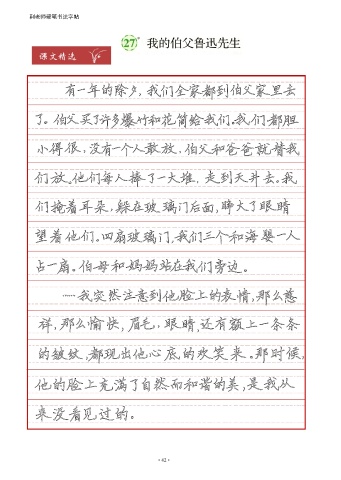 田老师硬笔书法字帖
27 我的伯父鲁迅先生
课文精选
有一年的除夕，我们全家都到伯父家里去
了。伯父买了许多爆竹和花筒给我们。我们都胆
小得很，没有一个人敢放，伯父和爸爸就替我
们放。他们每人捧了一大堆，走到天井去。我
们掩着耳朵，躲在玻璃门后面，睁大了眼睛
望着他们。四扇玻璃门，我们三个和海婴一人
占一扇。伯母和妈妈站在我们旁边。
……我突然注意到他脸上的表情，那么慈
祥，那么愉快，眉毛，眼睛，还有额上一条条
的皱纹，都现出他心底的欢笑来。那时候，
他的脸上充满了自然而和谐的美，是我从
来没看见过的。
· 42 ·